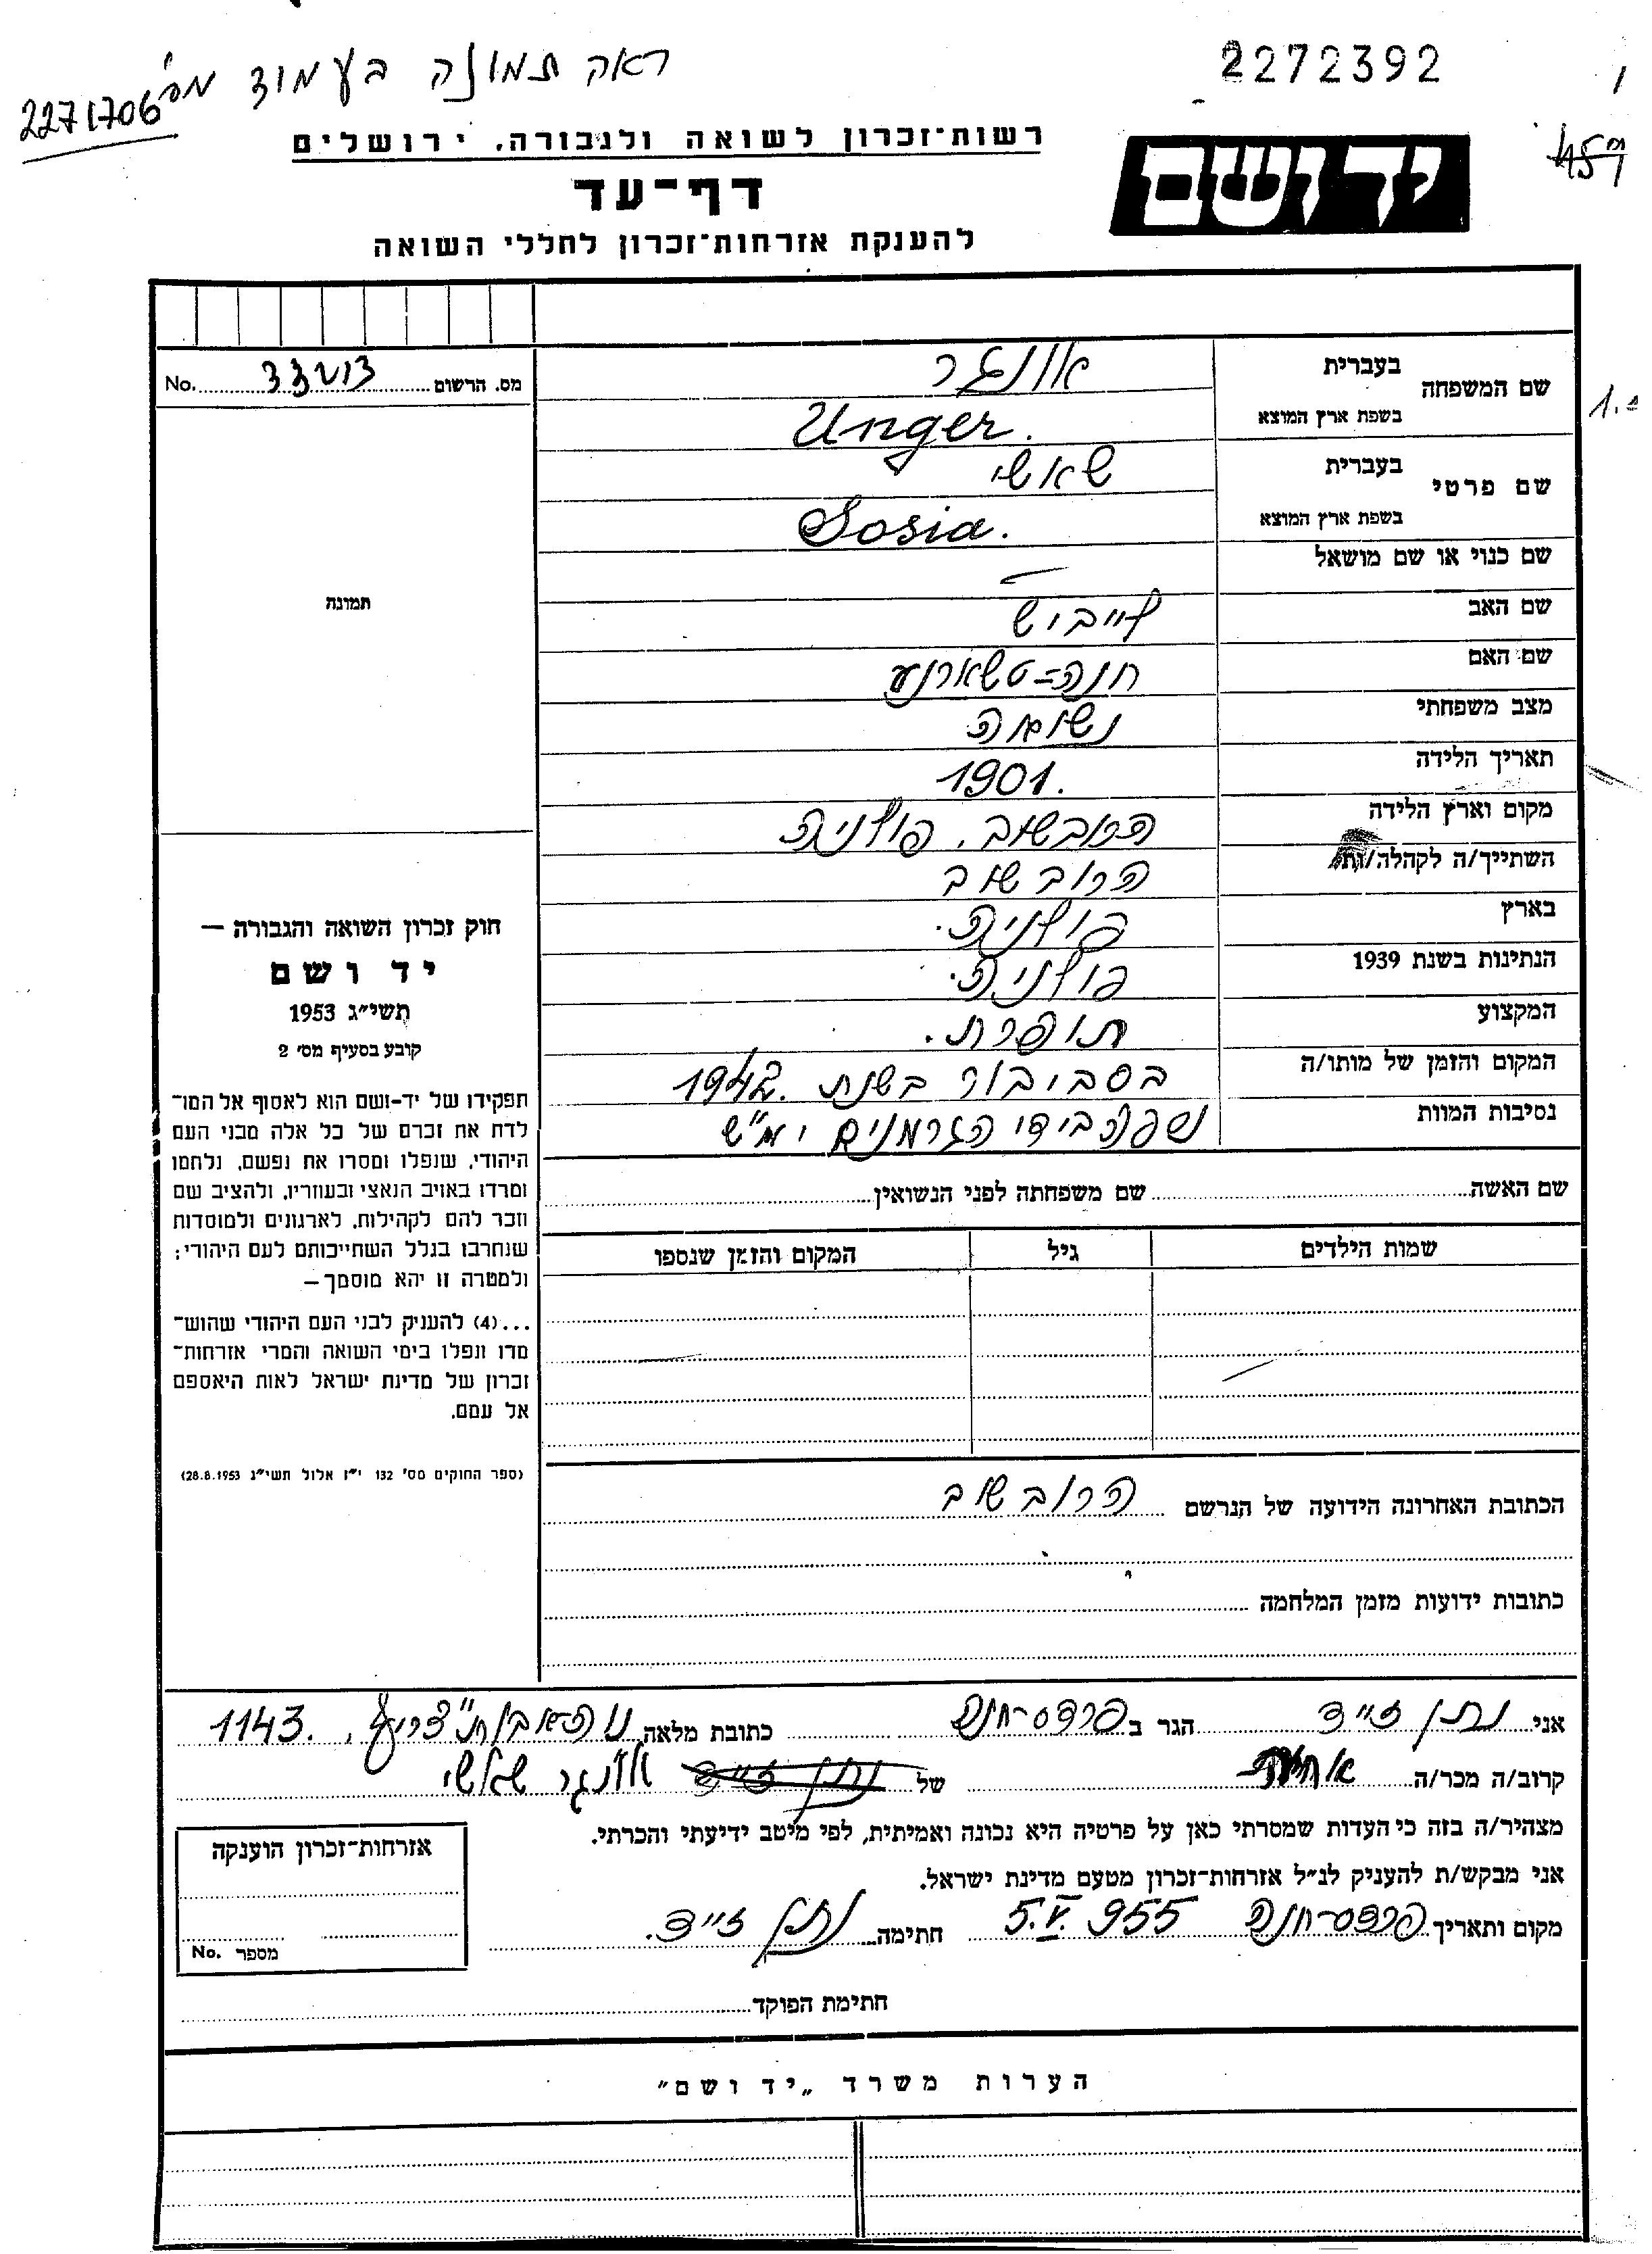 ראה תמונה בעמוד מס' 2271706
2272392
יד ושם
רשות-זכרון לשואה ולגבורה, ירושלים
דף-עד
להענקת אזרחות-זכרון לחללי השואה
מס. הרשום No.
תמונה
שם המשפחה בעברית אונגר
בשפת ארץ המוצא Unger.
שם פרטי בעברית שאשי
בשפת ארץ המוצא Sosia.
שם כנוי או שם מושאל –
שם האב לייביש
שם האם חנה=טשארנע
מצב משפחתי נשואה
תאריך הלידה 1901.
מקום וארץ הלידה הרובשוב, פולניה
השתייך/ה לקהלה/ות הרובשוב
בארץ פולניה.
הנתינות בשנת 1939 פולניה.
המקצוע תופרת.
המקום והזמן של מותו/ה בסביבור בשנת 1942.
נסיבות המוות נספה בידי הגרמנים ימ"ש
שם האשה שם משפחתה לפני הנשואין
שמות הילדים גיל המקום והזמן שנספו
חוק זכרון השואה והגבורה —
יד ושם
תשי"ג 1953
קובע בסעיף מס' 2
תפקידו של יד-ושם הוא לאסוף אל המו־
לדת את זכרם של כל אלה מבני העם
היהודי, שנפלו ומסרו את נפשם, נלחמו
ומרדו באויב הנאצי ובעוזריו, ולהציב שם
וזכר להם לקהילות, לארגונים ולמוסדות
שנחרבו בגלל השתייכותם לעם היהודי;
ולמטרה זו יהא מוסמך—
...(4) להעניק לבני העם היהודי שהוש־
מדו ונפלו בימי השואה והמרי אזרחות־
זכרון של מדינת ישראל לאות היאספם
אל עמם.
(ספר החוקים מס' 132 י"ז אלול תשי"ג 28.8.1953)
הכתובת האחרונה הידועה של הנרשם הרובשוב
כתובות ידועות מזמן המלחמה
אני נתן זייד הגר ב פרדס-חנה כתובת מלאה 1143.
קרוב/ה מכר/ה של נתן זייד אונגר שאשי
מצהיר/ה בזה כי העדות שמסרתי כאן על פרטיה היא נכונה ואמיתית, לפי מיטב ידיעתי והכרתי.
אני מבקש/ת להעניק לנ"ל אזרחות-זכרון מטעם מדינת ישראל.
מקום ותאריך פרדס-חנה 5.V.955 חתימה נתן זייד.
אזרחות-זכרון הוענקה
מספר No.
חתימת הפוקד
הערות משרד „יד ושם"